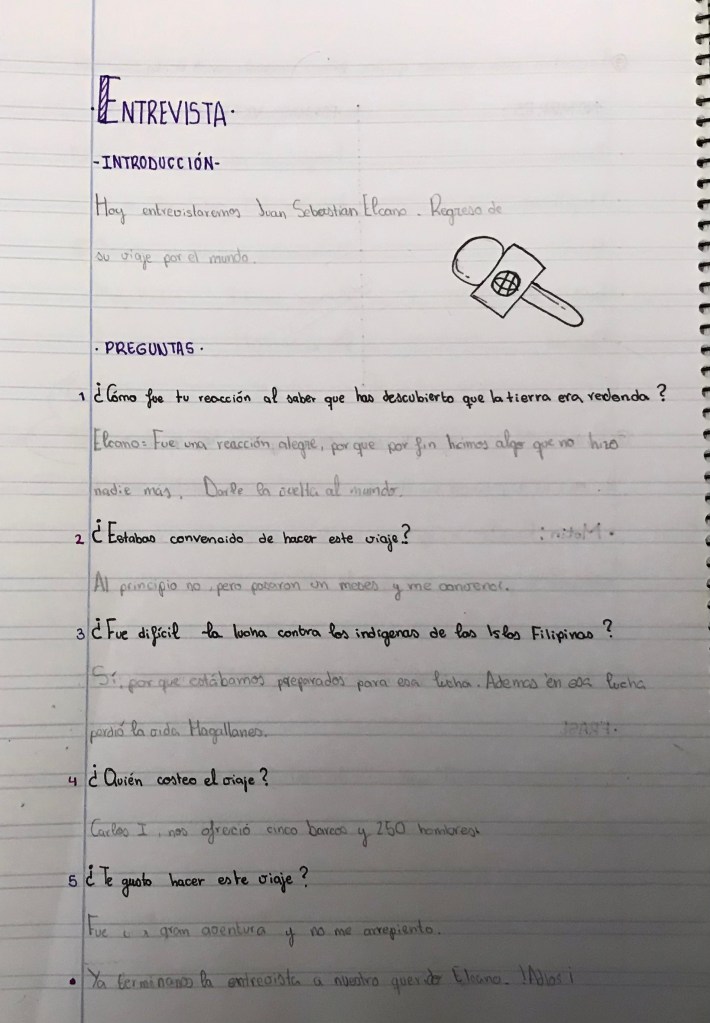 ·ENTREVISTA·
-INTRODUCCIÓN-
Hoy entrevistaremos Juan Sebastian Elcano. Regreso de
su viaje por el mundo.
· PREGUNTAS ·
1 ¿Cómo fue tu reacción al saber que has descubierto que la tierra era redonda?
Elcano= Fue una reacción alegre, por que por fin hcimos algo que no hizo
nadie más. Darle la vuelta al mundo.
2 ¿Estabas convencido de hacer este viaje?
Al principio no, pero pasaron un meses y me convencí.
3 ¿Fue difícil la lucha contra los indígenas de las Islas Filipinas?
Sí, por que estábamos preparados para esa lucha. Ademas en esa lucha
perdió la vida Magallanes.
4 ¿Quién costeo el viaje?
Carlos I, nos ofreció cinco barcos y 250 hombres.
5 ¿Te gusto hacer este viaje?
Fue gran aventura y no me arrepiento.
• Ya terminamos la entrevista a nuestro querido Elcano. !Adios¡